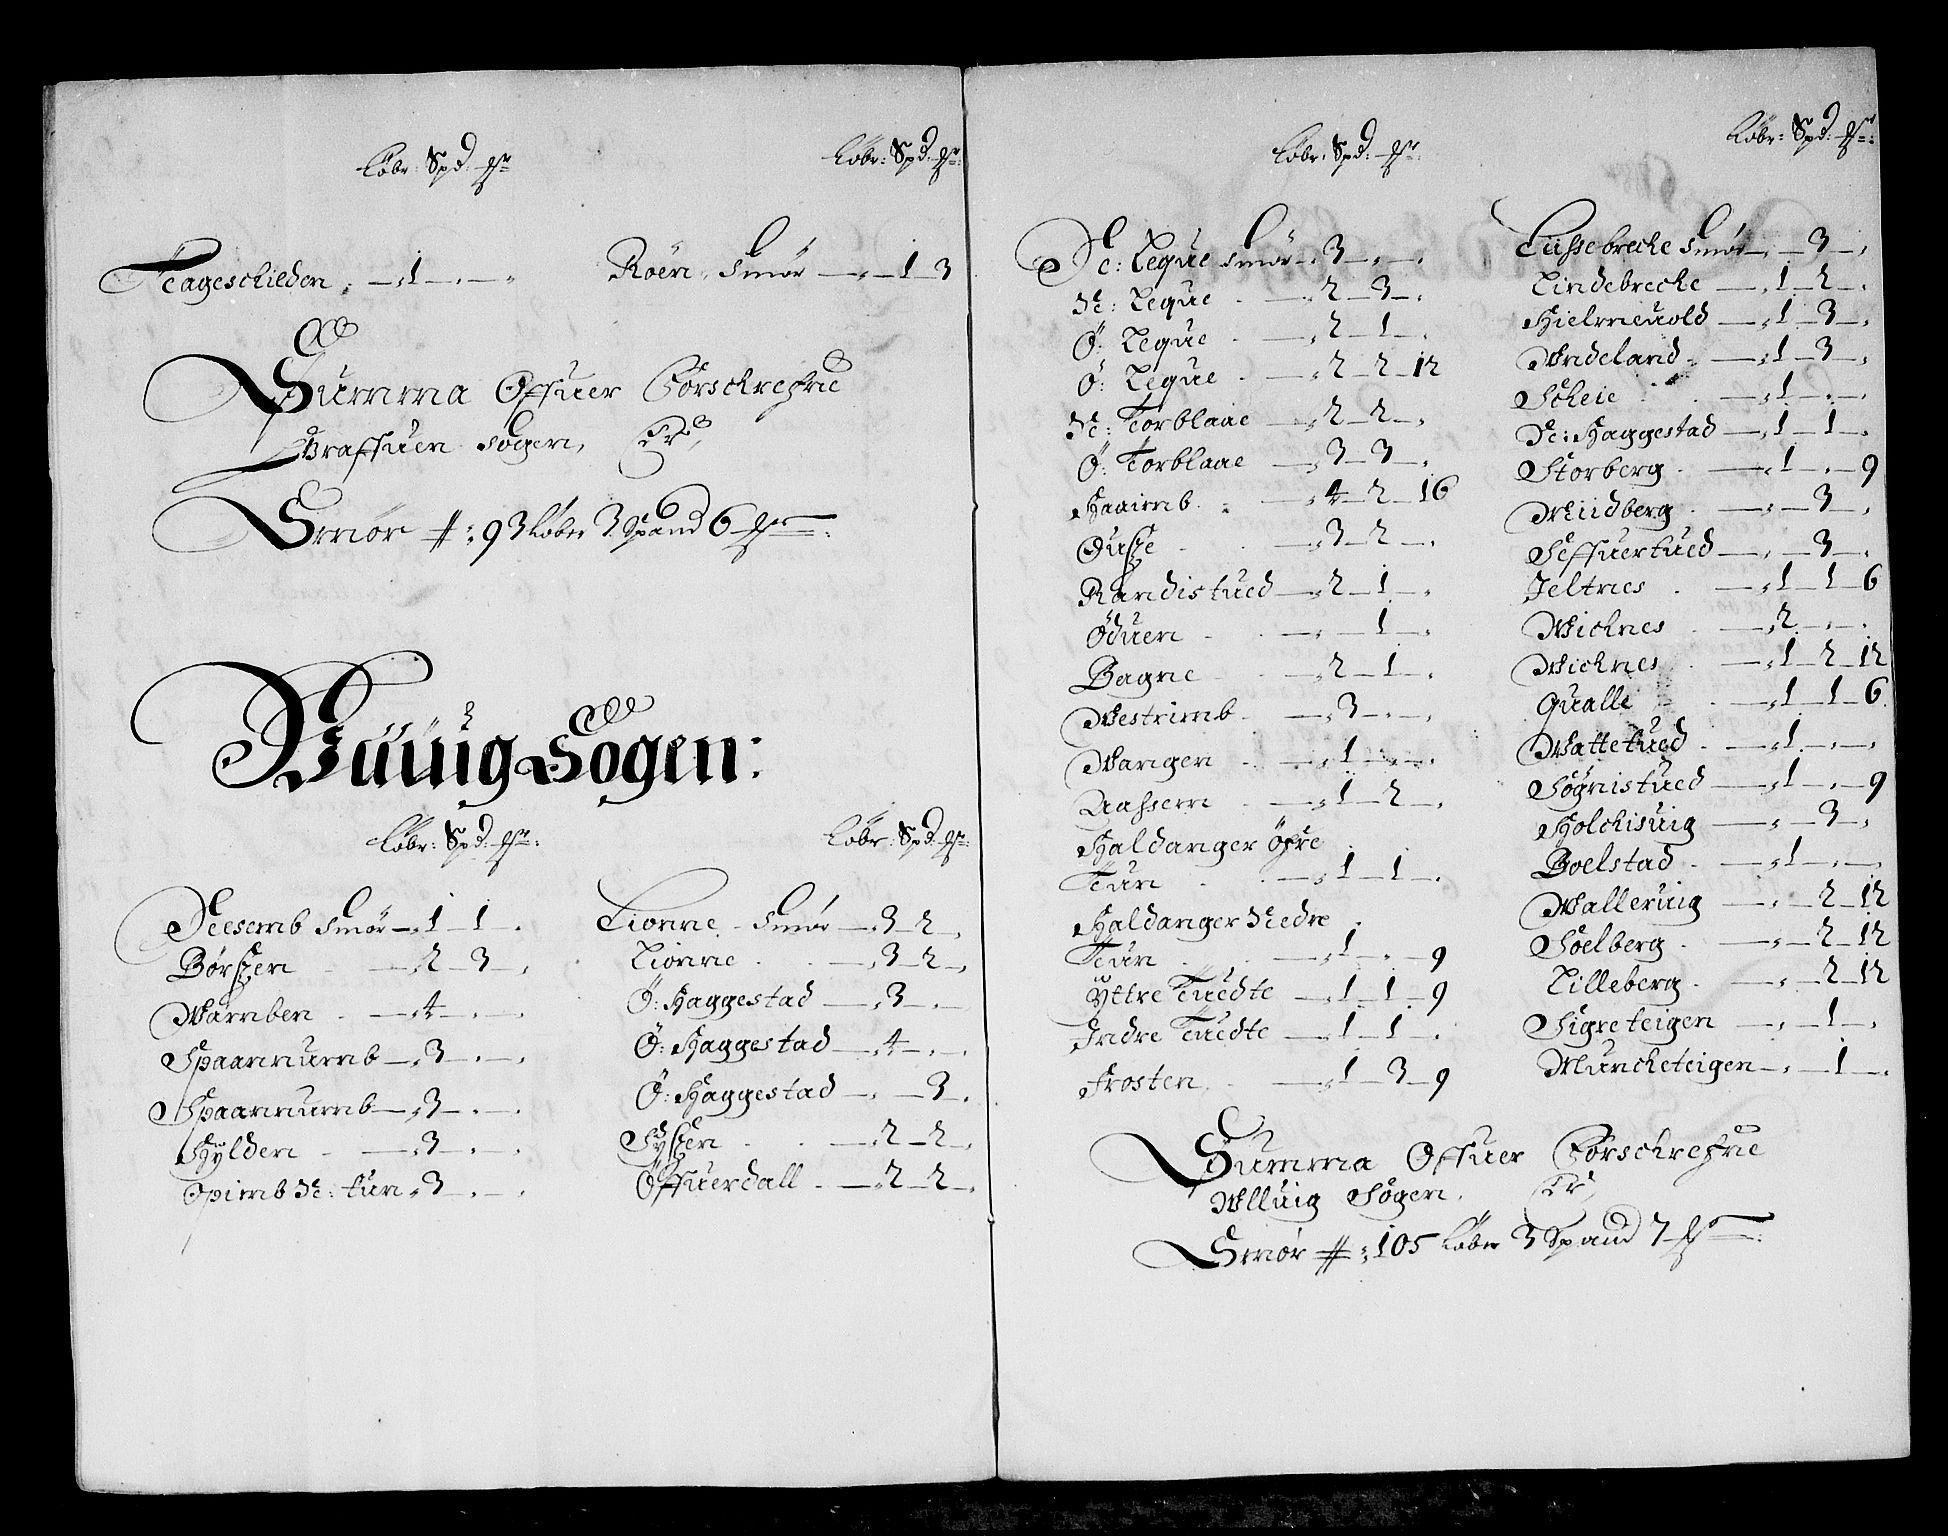 Løbr: Spd: 
Løbr: Spd: 
Hageschieden 1
Røen, Smør 1 3
Summa Offuer Forschrefne
Graffuen Sogen, Er,
Smør #: 93 Løber 3 Spand 6
Wllüüig Sogen:
Løbr: Spd: 
Løbr: Spd: 
Seesemb Smør 1 1
Børszen 2 3
Wamben 4
Spaannumb 3
Spaannumb 3
Hylden 3
Opimb Ne: tun 3
Lionne Smør 3 2
Lionne 3 2
Ø: Haggestad 3
Ø: Haggestad 4
Ø: Haggestad 3
Syszen 2 2
Offuerdall 2 2
Løbr: Spd: 
Løbr: Spd: 
Ne: Leque Smør 3
Ne: Leque 2 3
Ø: Leque 2 1
Ø: Leque 2 2 12
Ne: Torblaae 2 2
Ø: Torblaae 3 3
Haaimb 4 2 16
Øusze 3 2
Randistued 2 1
Øduen 1
Bagne 2 1
Westrimb 3
Wangen 1
Aahsem 1 2
Haldanger Øfre
Tun 1 1
Haldanger Nedre
Tun 1 9
Yttre Tuedte 1 1 9
Indre Tuedte 1 1
Frosten 1 3 9
Tussebrecke Smør 3
Lindebrecke 1 2
Hielmeuold 1 3
Wndeland 1 3
Scheie 1
Ne: Haggestad 1 1
Storberg 1 9
Mundberg 3
Seffuertued 3
Jeltnes 1 1 6
Wicknes 2
Wicknes 1 2 12
Qualle 1 1 6
Wattetued 1
Søgnistued 1 9
Holchisuig 3
Boelstad 1
Walleruig 2 12
Soelberg 2 12
Lilleberg 2 12
Sigreteigen 1
Muncketeigen 1
Summa Offuer Forschrefne
Wlluig Sogen, Er,
Smør #: 105 Løber 3 Spand 7